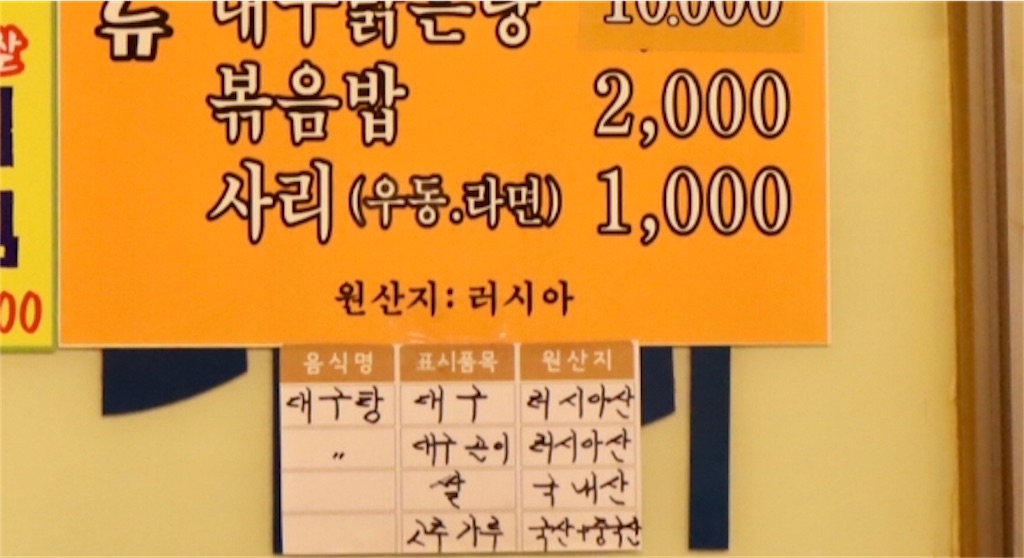 류 대구맑은탕 10.000
볶음밥 2,000
사리 (우동.라면) 1,000
원산지: 러시아
00
음식명 표시품목 원산지
대구탕 대구 러시아산
〃 대구 곤이 러시아산
쌀 국내산
고추가루 국산+중국산